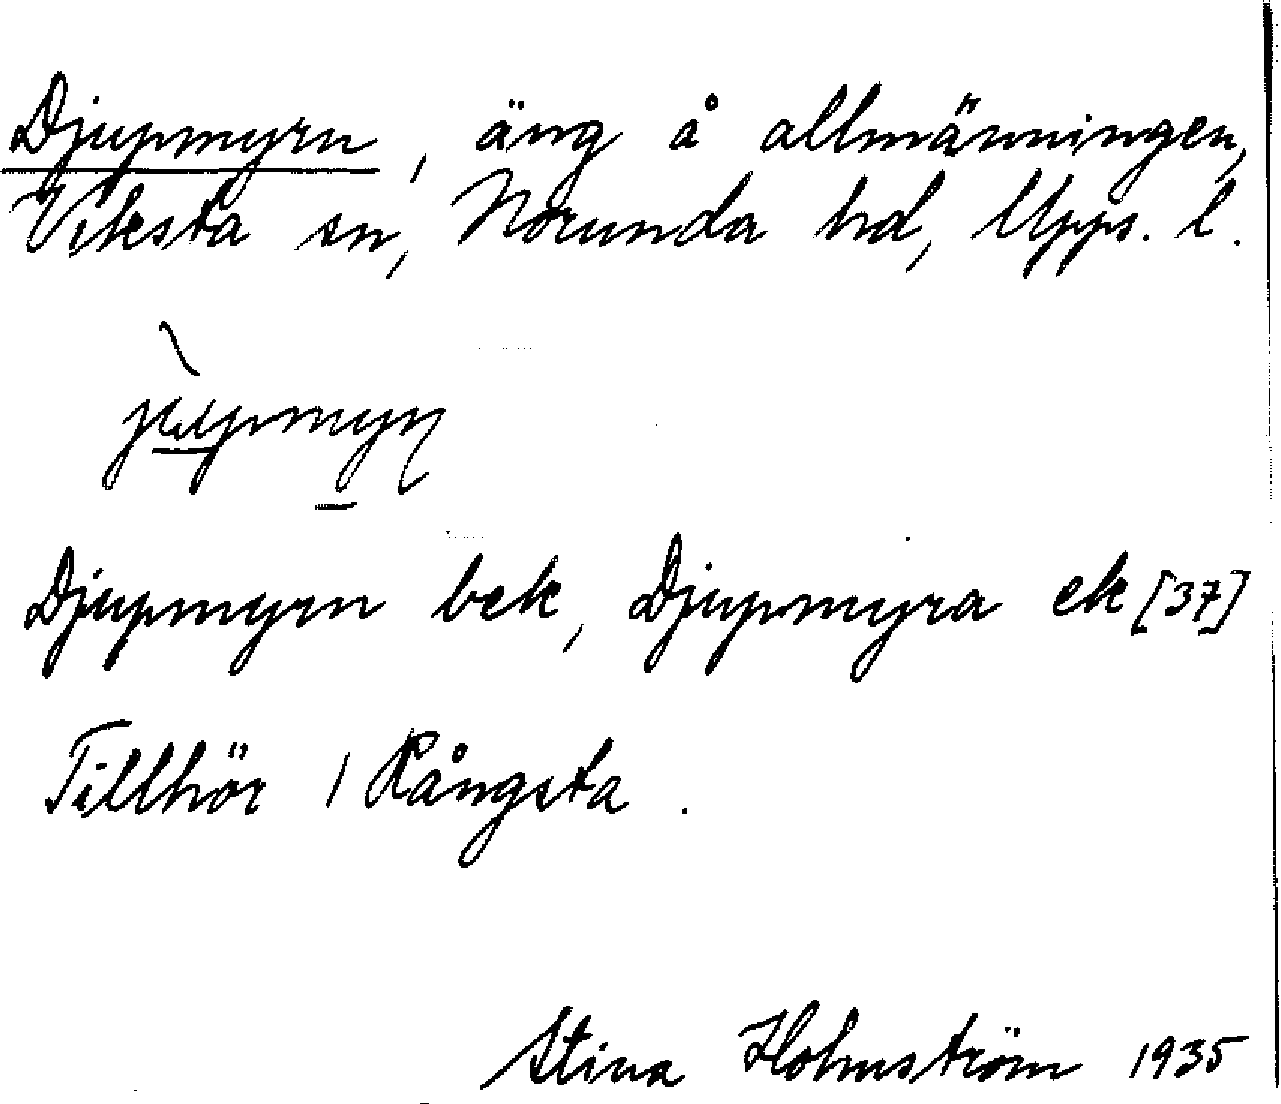 Djupmyrn, äng å allmänningen,
Viksta sn, Norunda hd, Upps. l.
jùpmyɳ
Djupmyrn bek, Djupmyra ek [37]
Tillhör 1 Rångsta.
Stina Holmström 1935